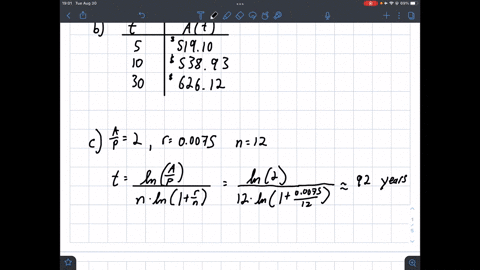 19:01 Tue Aug 20
69%
b) t A(t)
5 $519.10
10 $538.93
30 $626.12
c) A/P = 2, r = 0.0075 n = 12
t = ln(A/P) / n·ln(1+r/n) = ln(2) / 12·ln(1+0.0075/12) ≈ 92 years